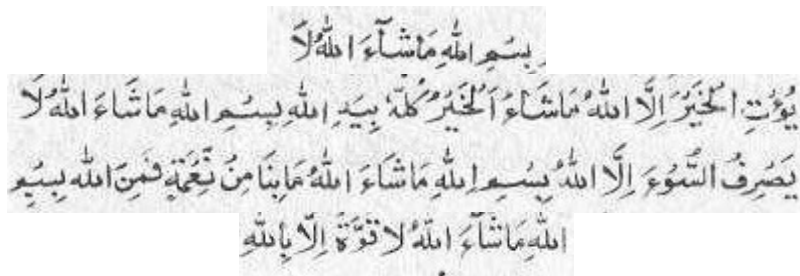 بِسْمِ اللهِ مَاشَآءَ اللهُ لَا
يُؤْتِ الْخَيْرَ اِلَّا اللهُ مَاشَاءَ اَلْخَيْرُ كُلُّهٗ بِيَدِ اللهِ بِسْمِ اللهِ مَاشَاءَ اللهُ لَا
يَصْرِفُ السُّوْءَ اِلَّا اللهُ بِسْمِ اللهِ مَاشَاءَ اللهُ مَابِنَا مِنْ نِّعْمَةٍ فَمِنَ اللهِ بِسْمِ
اللهِ مَاشَآءَ اللهُ لَا قُوَّةَ اِلَّا بِاللهِ